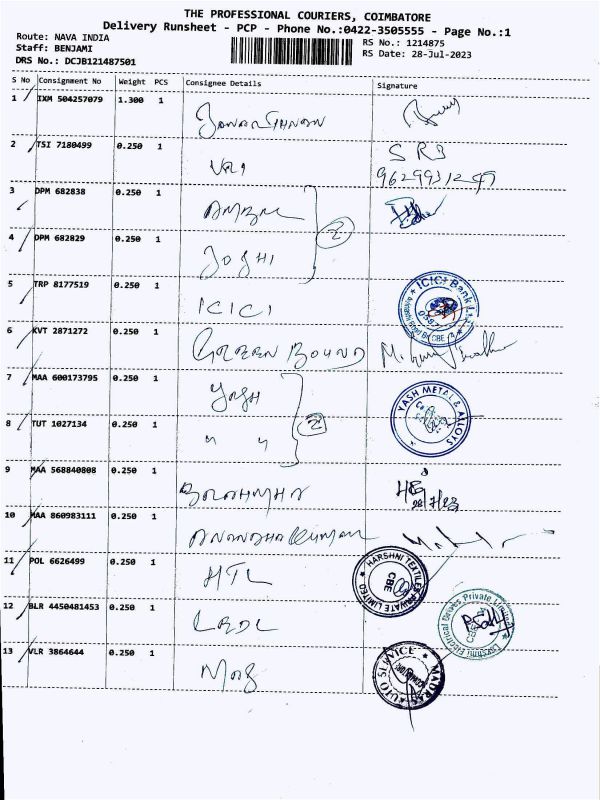 THE PROFESSIONAL COURIERS, COIMBATORE
Delivery Runsheet - PCP - Phone No.:0422-3505555 - Page No.:1
Route: NAVA INDIA
RS No.: 1214875
Staff: BENJAMI
RS Date: 28-Jul-2023
DRS No.: DCJB121487501
S No Consignment No Weight PCS Consignee Details Signature
1 IXM 504257079 1.300 1 JANARTHNAN
2 TSI 7180499 0.250 1 SRB
9629931247
3 DPM 682838 0.250 1
2
4 DPM 682829 0.250 1 JOSHI
5 TRP 8177519 0.250 1 ICICI ICICI Bank CBE
6 KVT 2871272 0.250 1 GOLDEN BOUND
7 MAA 600173795 0.250 1 YASH YASH METAL & ALLOYS
2
8 TUT 1027134 0.250 1 " "
9 MAA 568840808 0.250 1 28/7/23
10 MAA 860983111 0.250 1 ANANDHAKUMAR
11 POL 6626499 0.250 1 HTL HARSHNI TEXTILES PRIVATE LIMITED CBE
12 BLR 4450481453 0.250 1 Lakshmi Electrical Drives Private Limited
13 VLR 3864644 0.250 1 MAS MADRAS AUTO SERVICE